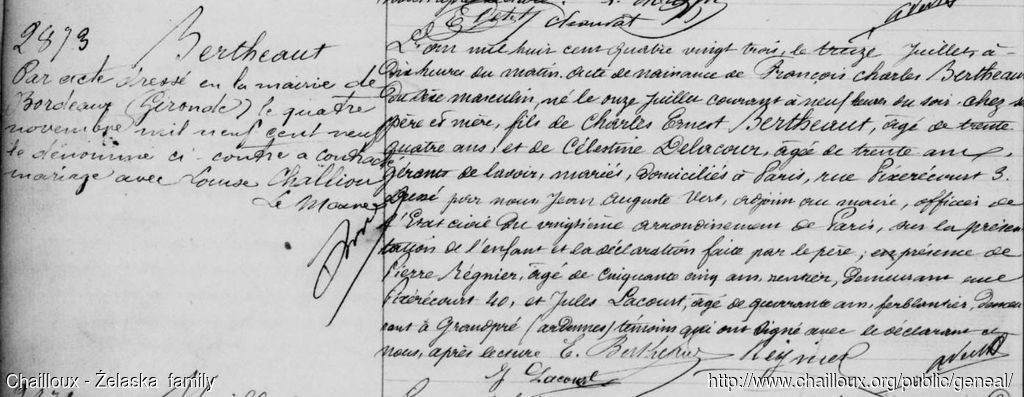 2873
Bertheaut
Par acte dressé en la mairie de
Bordeaux (Gironde) le quatre
novembre mil neuf cent neuf
le dénommé ci-contre a contracté
mariage avec Louise Challiou
Le Maire
L'an mil huit cent quatre vingt trois, le treize Juillet, à
dix heures du matin. acte de naissance de François Charles Bertheaut
du sexe masculin, né le onze Juillet courant à neuf heures du soir chez ses
père et mère, fils de Charles Ernest Bertheaut, âgé de trente
quatre ans, et de Célestine Delacour, âgée de trente ans,
gérants de lavoir, mariés, domiciliés à Paris, rue Pixerécourt 3.
Dressé par nous Jean Auguste Vert, adjoint au maire, officier de
l'Etat civil du vingtième arrondissement de Paris, sur la présen
tation de l'enfant et la déclaration faite par le père; en présence de
Pierre Régnier, âgé de cinquante cinq ans, rentier, demeurant rue
Pixérécourt 40, et Jules Lacourt, âgé de quarante ans, ferblantier, demeu
rant à Grandpré (ardennes) témoins qui ont signé avec le déclarant et
nous, après lecture E. Bertheaut Régnier
J Lacourt
Chailloux - Żelaska family
http://www.chailloux.org/public/geneal/